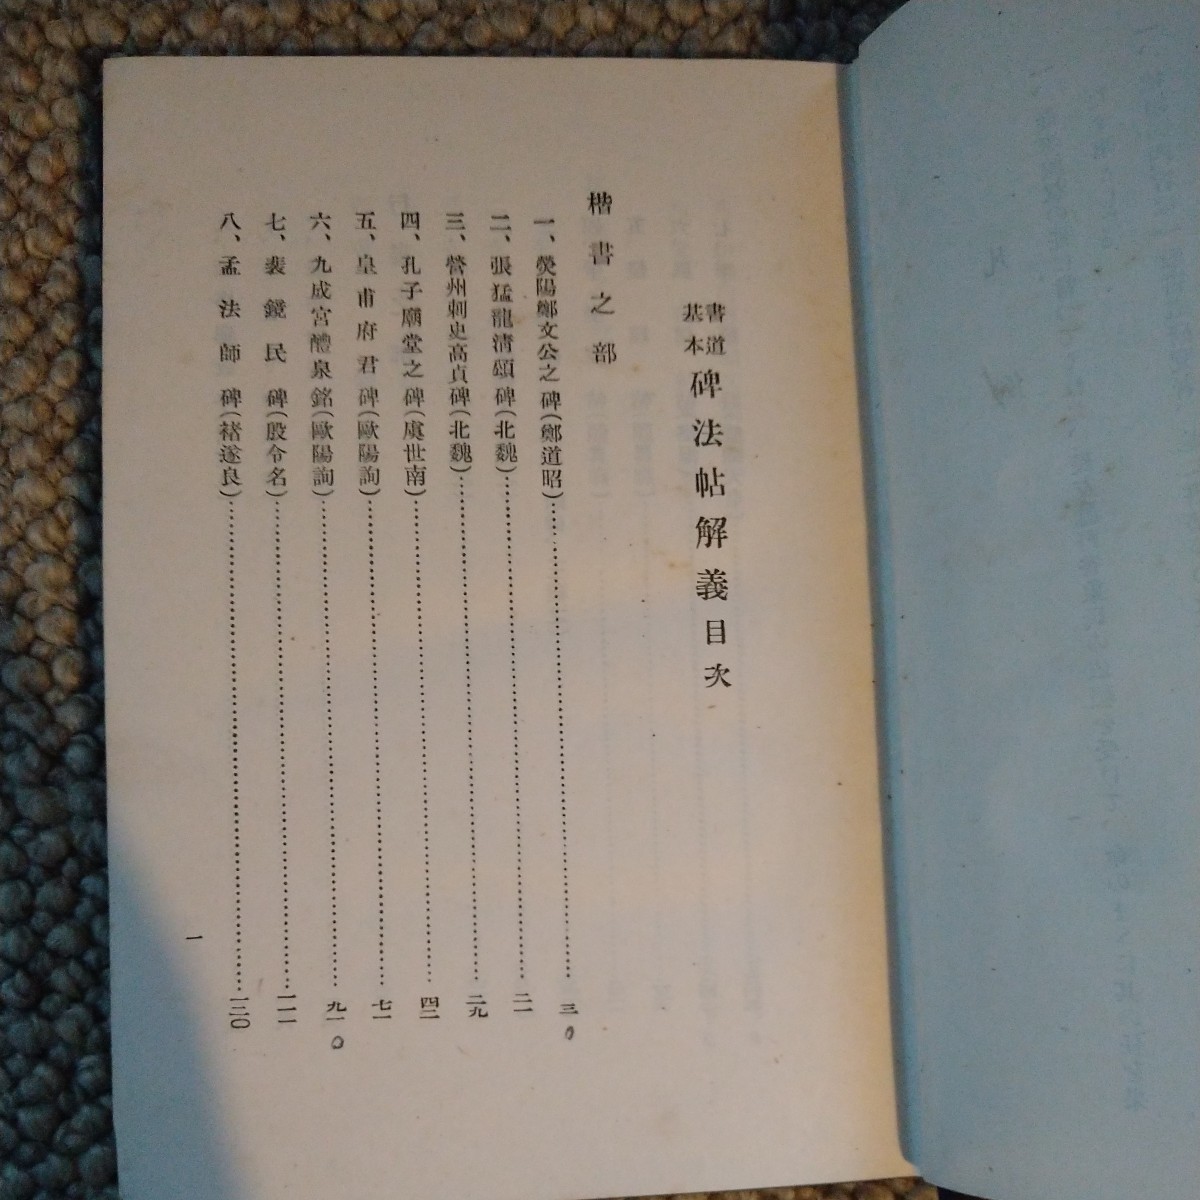 書道基本 碑法帖解義目次
楷書之部
一、熒陽鄭文公之碑(鄭道昭)……三
二、張猛龍清頌碑(北魏)……二一
三、營州刺史高貞碑(北魏)……二九
四、孔子廟堂之碑(虞世南)……四二
五、皇甫府君碑(歐陽詢)……七一
六、九成宮醴泉銘(歐陽詢)……九一
七、裴鏡民碑(殷令名)……一一一
八、孟法師碑(褚遂良)……一二〇
一